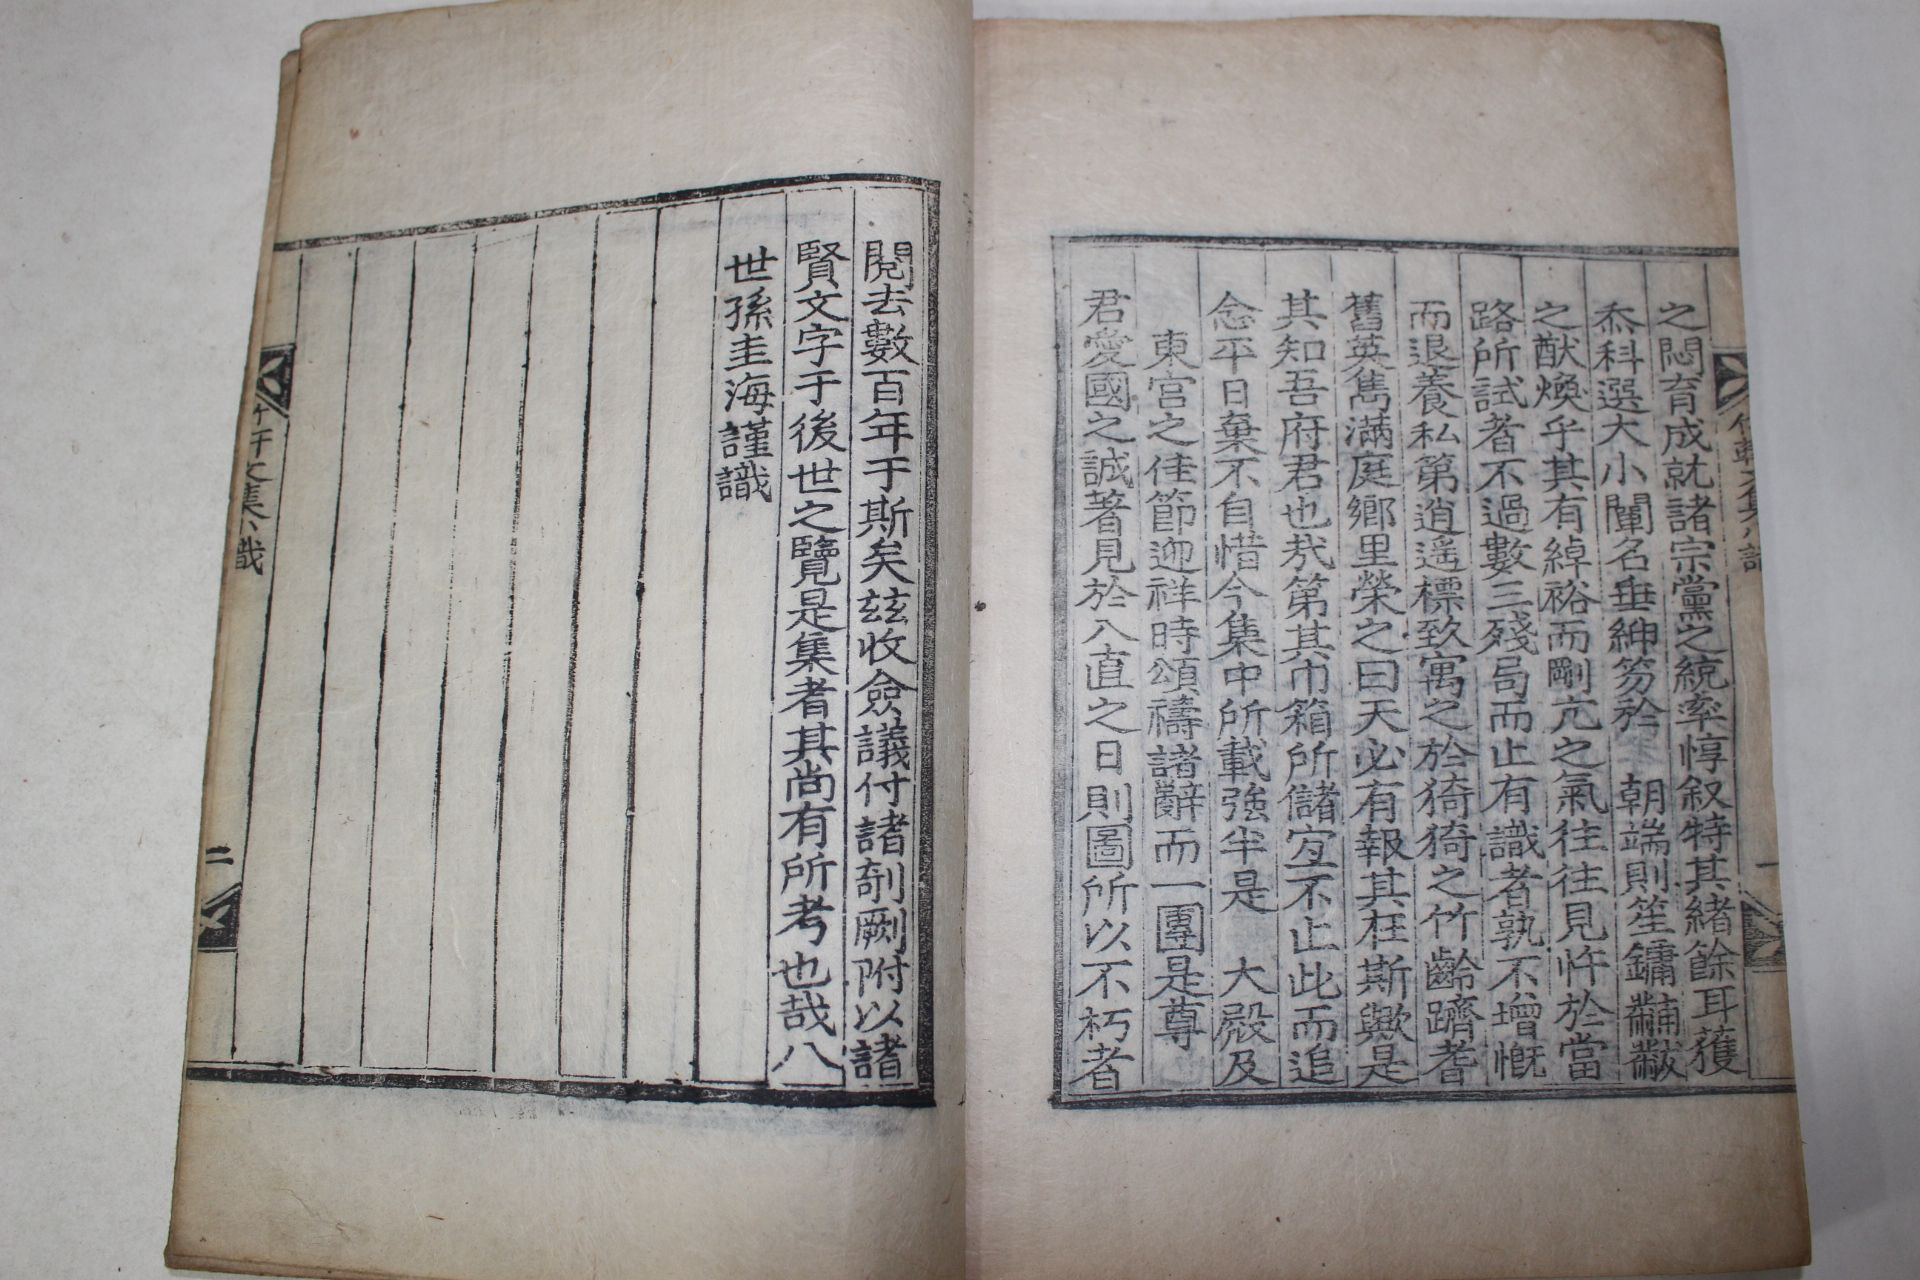 之閟育成就諸宗黨之統率惇叙特其緖餘耳獲
忝科選大小闡名垂紳笏於 朝端則笙鏞黼黻
之猷煥乎其有綽裕而剛亢之氣徃徃見忤於當
路所試者不過數三殘局而止有識者孰不增慨
而退養私第逍遥標致寓之於猗猗之竹齡躋耆
舊英雋滿庭鄉里榮之曰天必有報其在斯歟是
其知吾府君也㢤第其巾箱所儲宐不止此而追
念平日棄不自惜今集中所載強半是 大殿及
東宮之佳節迎祥時頌禱諸辭而一團是尊
君愛國之誠著見於入直之日則圖所以不朽者
閱去數百年于斯矣玆收僉議付諸剞劂附以諸
賢文字于後世之覽是集者其尚有所考也哉八
世孫圭海謹識
竹軒文集 識
二